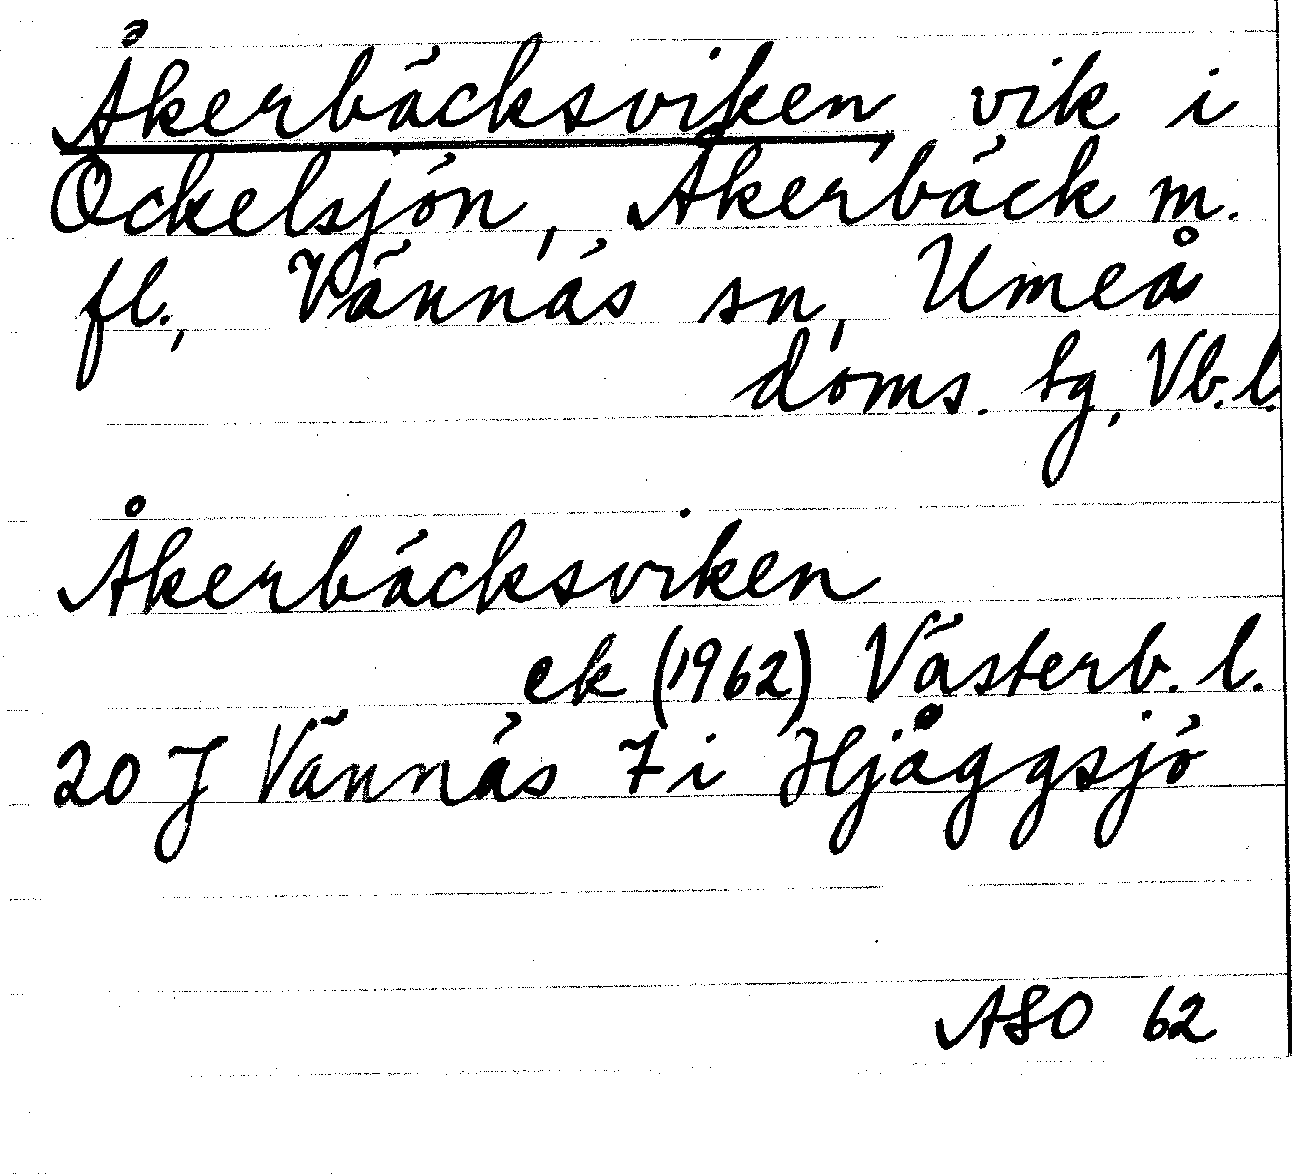 Åkerbäcksviken, vik i
Ockelsjön, Åkerbäck m.
fl., Vännäs sn, Umeå
doms. tg, Vb.l.
Åkerbäcksviken
ek (1962) Västerb. l.
20 J Vännäs 7 i Hjåggsjö
ASO 62